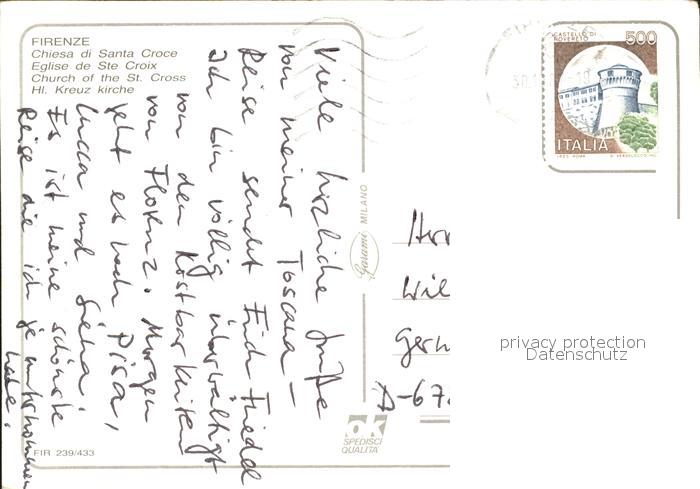 FIRENZE
Chiesa di Santa Croce
Eglise de Ste Croix
Church of the St. Cross
Hl. Kreuz kirche
Viele herzliche Grüße
von meiner Toscana-
Reise sendet Euch Friedel
Ich bin völlig überwältigt
von den Kostbarkeiten
von Florenz. Morgen
geht es nach Pisa,
Lucca und Siena.
Es ist meine schönste
Reise die ich je unternommen
habe.
FIR 239/433
Garami MILANO
ok
SPEDISCI
QUALITA'
CASTELLO DI
ROVERETO
500
ITALIA
Herr
Wil
Gern
D-67
privacy protection
Datenschutz